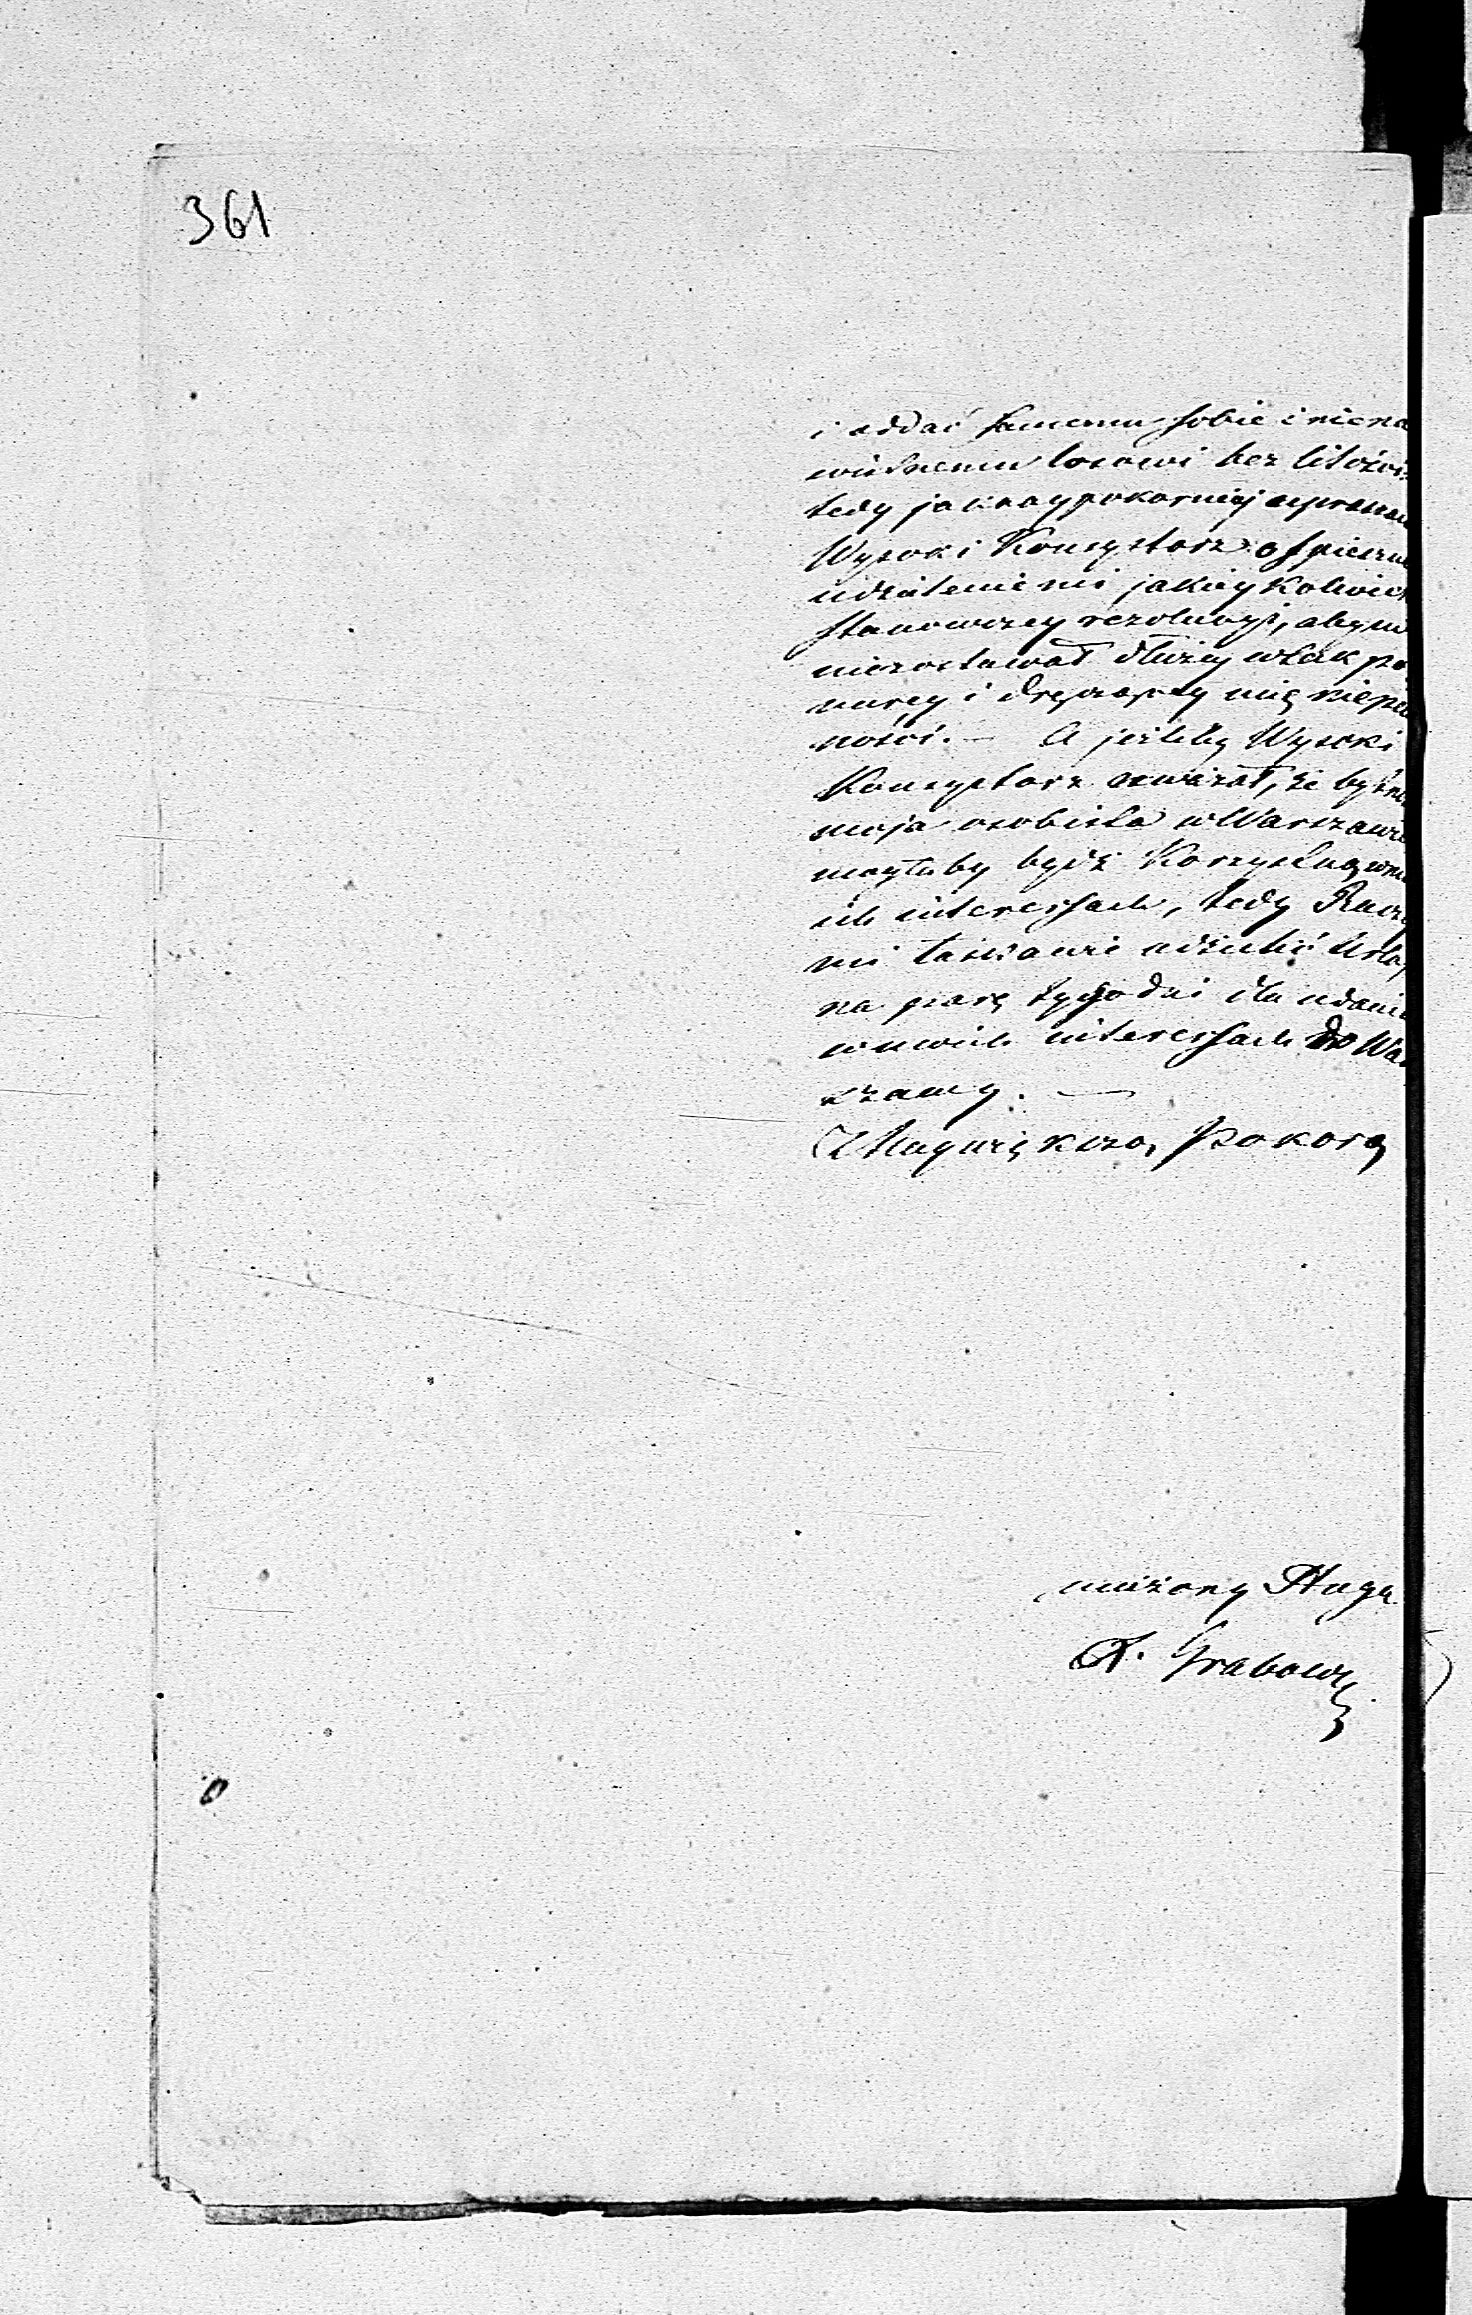 361
i oddać samemu sobie i niena
wistnemu losowi bez litości
tedy jaknaypokorniej upraszam
Wysoki Konsystorz o spieszne
udzielenie mi jakiey kolwiek
stanowczey rezolucyi, abym
niezostawał dłużey w tak po
nurey i dręczącey mię niepew
ności. — A jeżeliby Wysoki
Konsystorz uważał, że bytność
moja osobista w Warszawie
mogłaby bydź Korzystną w mo
ich interessach, tedy Raczy
mi łaskawie udzielić Urlop
na parę tygodni dla udania
w moich interessach do War
szawy. —
Z Naywiększą Pokorą
uniżony Sługa
A. Grabows